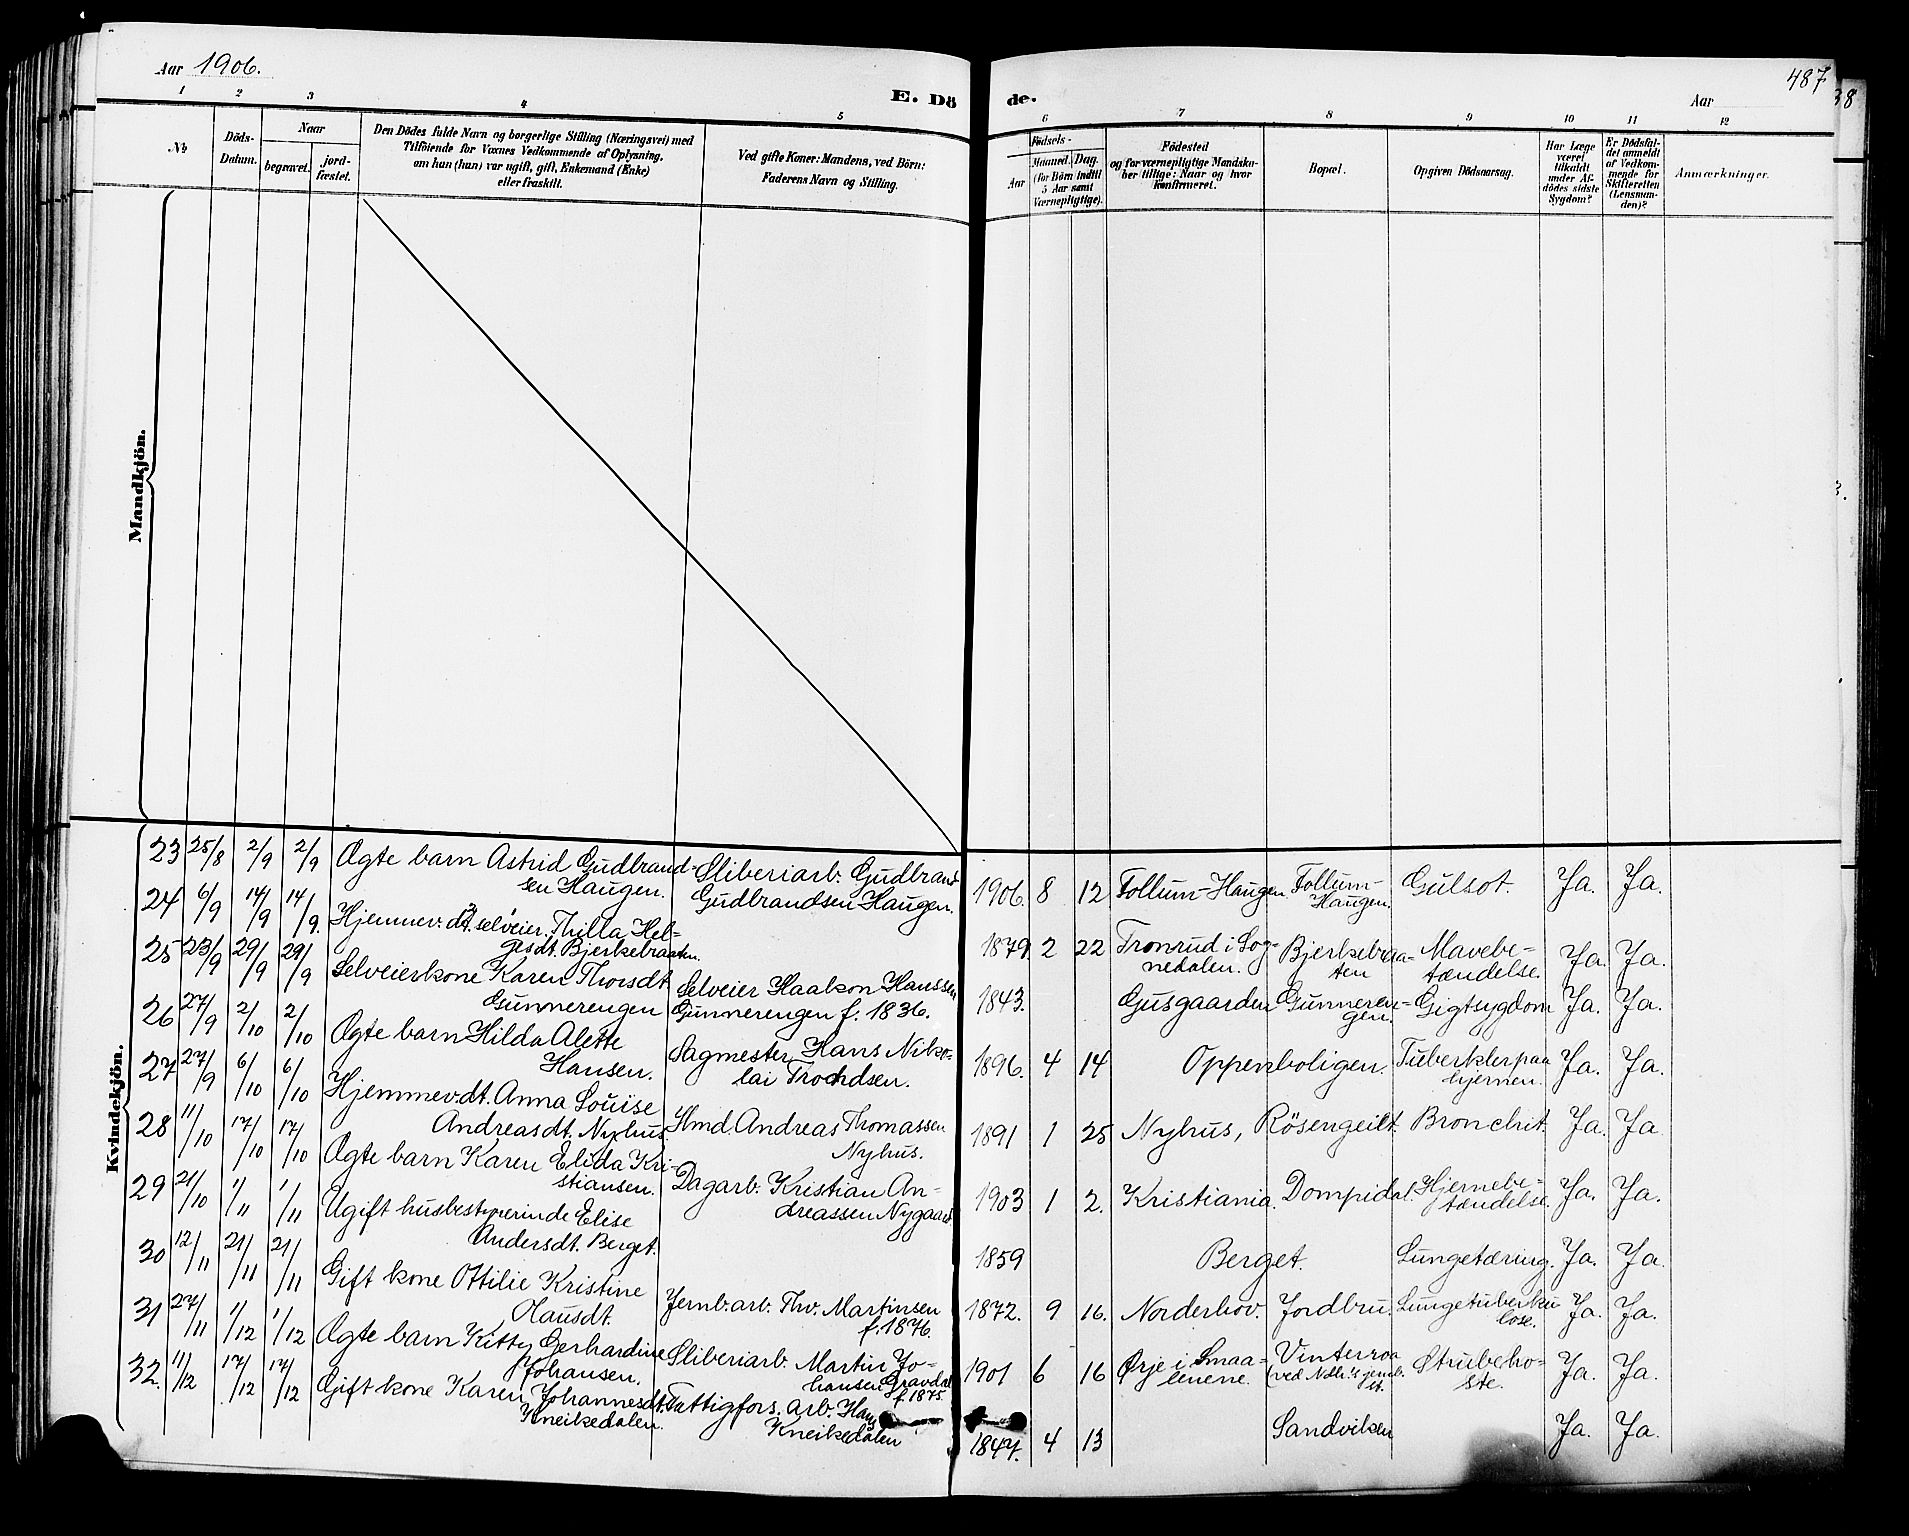 Aar 1906.
E. Döde.
Aar
487
38
1 2 3 4 5 6 7 8 9 10 11 12
№
Döds-
Datum.
Naar
begravet.
jord-
fæstet.
Den Dödes fulde Navn og borgerlige Stilling (Næringsvei) med
Tilföiende for Voxnes Vedkommende af Oplysning,
om han (hun) var ugift, gift, Enkemand (Enke)
eller fraskilt.
Ved gifte Koner: Mandens, ved Börn:
Faderens Navn og Stilling.
Födsels-
Aar
Maaned. Dag.
(for Börn indtil
5 Aar samt
Værnepligtige).
Födested
og for værnepligtige Mandskaber
tillige: Naar og hvor
konfirmeret.
Bopæl.
Opgiven Dödsaarsag.
Har Læge
været
tilkaldt
under Afdödes
sidste
Sygdom?
Er Dödsfaldet
anmeldt
af Vedkommende
for
Skifteretten
(Lensmanden)?
Anmærkninger.
Mandkjön.
Kvindekjön.
23 25/8 2/9 2/9 Ægte barn Astrid Gudbrand-
sen Haugen.
Sliberiarb. Gudbrand
Gudbrandsen Haugen.
1906. 8 12 Follum-Haugen. Follum-
Haugen.
Gulsot. Ja. Ja.
24 6/9 14/9 14/9. Hjemmev. dt. selveier. Thilla Hel-
gesdt. Bjerkebraaten.
1879 2 22 Tronrud i Sog-
nedalen.
Bjerkebraa-
ten
Mavebe-
tændelse.
Ja. Ja.
25 23/9 29/9 29/9 Selveierkone Karen Thorsdt.
Gunnerengen
Selveier Haakon Hanssen
Gunnerengen f. 1836.
1843. Gusgaarden Gunneren-
gen.
Gigtsygdom Ja. Ja.
26 27/9 2/10 2/10 Ægte barn Hilda Alette
Hansen.
Sagmester Hans Niko-
lai Trondsen.
1896. 4 14 Oppenboligen. Tuberkler paa
hjernen.
Ja. Ja.
27 27/9 6/10 6/10 Hjemmev. dt. Anna Louise
Andreasdt. Nyhus.
Hmd. Andreas Thomassen
Nyhus.
1891 1 25 Nyhus, Rösengeilt. Bronchit. Ja. Ja
28 11/10 17/10 17/10 Ægte barn Karen Elida Kri-
stiansen.
Dagarb. Kristian An-
dreassen Nygaard
1903 1 2. Kristiania. Dompidal. Hjernebe-
tændelse.
Ja. Ja.
29 21/10 1/11 1/11 Ugift husbestyrerinde Elise
Andersdt. Berget.
1859 Berget. Lungetæring. Ja. Ja.
30 12/11 21/11 21/11 Gift kone Ottilie Kristine
Olausdt.
Jernb. arb. Thv. Martinsen
f. 1876.
1872. 9 16. Norderhov. Jordbru. Lungetuberku
lose.
Ja. Ja.
31 27/11 1/12 1/12 Ægte barn Kitty Gerhardine
Johansen.
Sliberiarb. Martin Jo-
hansen Gravdal
f. 1875.
1901 6 16 Ørje i Smaa-
lenene.
Vinterroa
(ved Ndh.s jernb.
st.
Strubeho-
ste.
Ja. Ja.
32. 11/12 17/12 17/12 Gift kone Karen Johannesdt.
Kneikedalen.
Fattigfors. arb. Hans
Kneikedalen
1847. 4 13 Sandviken Ja. Ja.